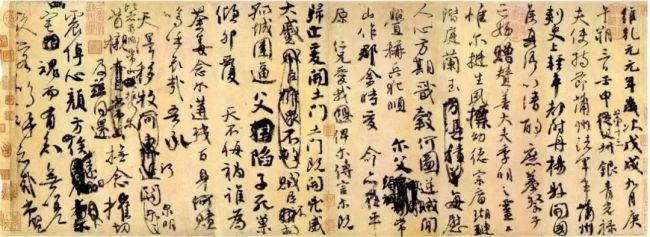 維乾元元年歲次戊戌九月庚
午朔三日壬申第十三叔銀青光祿
夫使持節蒲州諸軍事蒲州
刺史上輕車都尉丹楊縣開國
侯真卿以清酌庶羞祭于
亡姪贈贊善大夫季明之靈曰
惟爾挺生夙標幼德宗廟瑚璉
階庭蘭玉每慰
人心方期戩穀何圖逆賊閒
釁稱兵犯順爾父
山作郡余時受命亦在平
原仁兄愛我俾爾傳言爾既
歸止爰開土門土門既開兇威
大蹙賊臣不救
孤城圍逼父陷子死巢
傾卵覆天不悔禍誰為
荼毒念爾遘殘百身何贖
嗚呼哀哉吾承
天澤移牧河關泉明
首櫬及茲同還撫念摧切
震悼心顏方俟
幽宅魂而有知無嗟
久客嗚呼哀哉尚饗